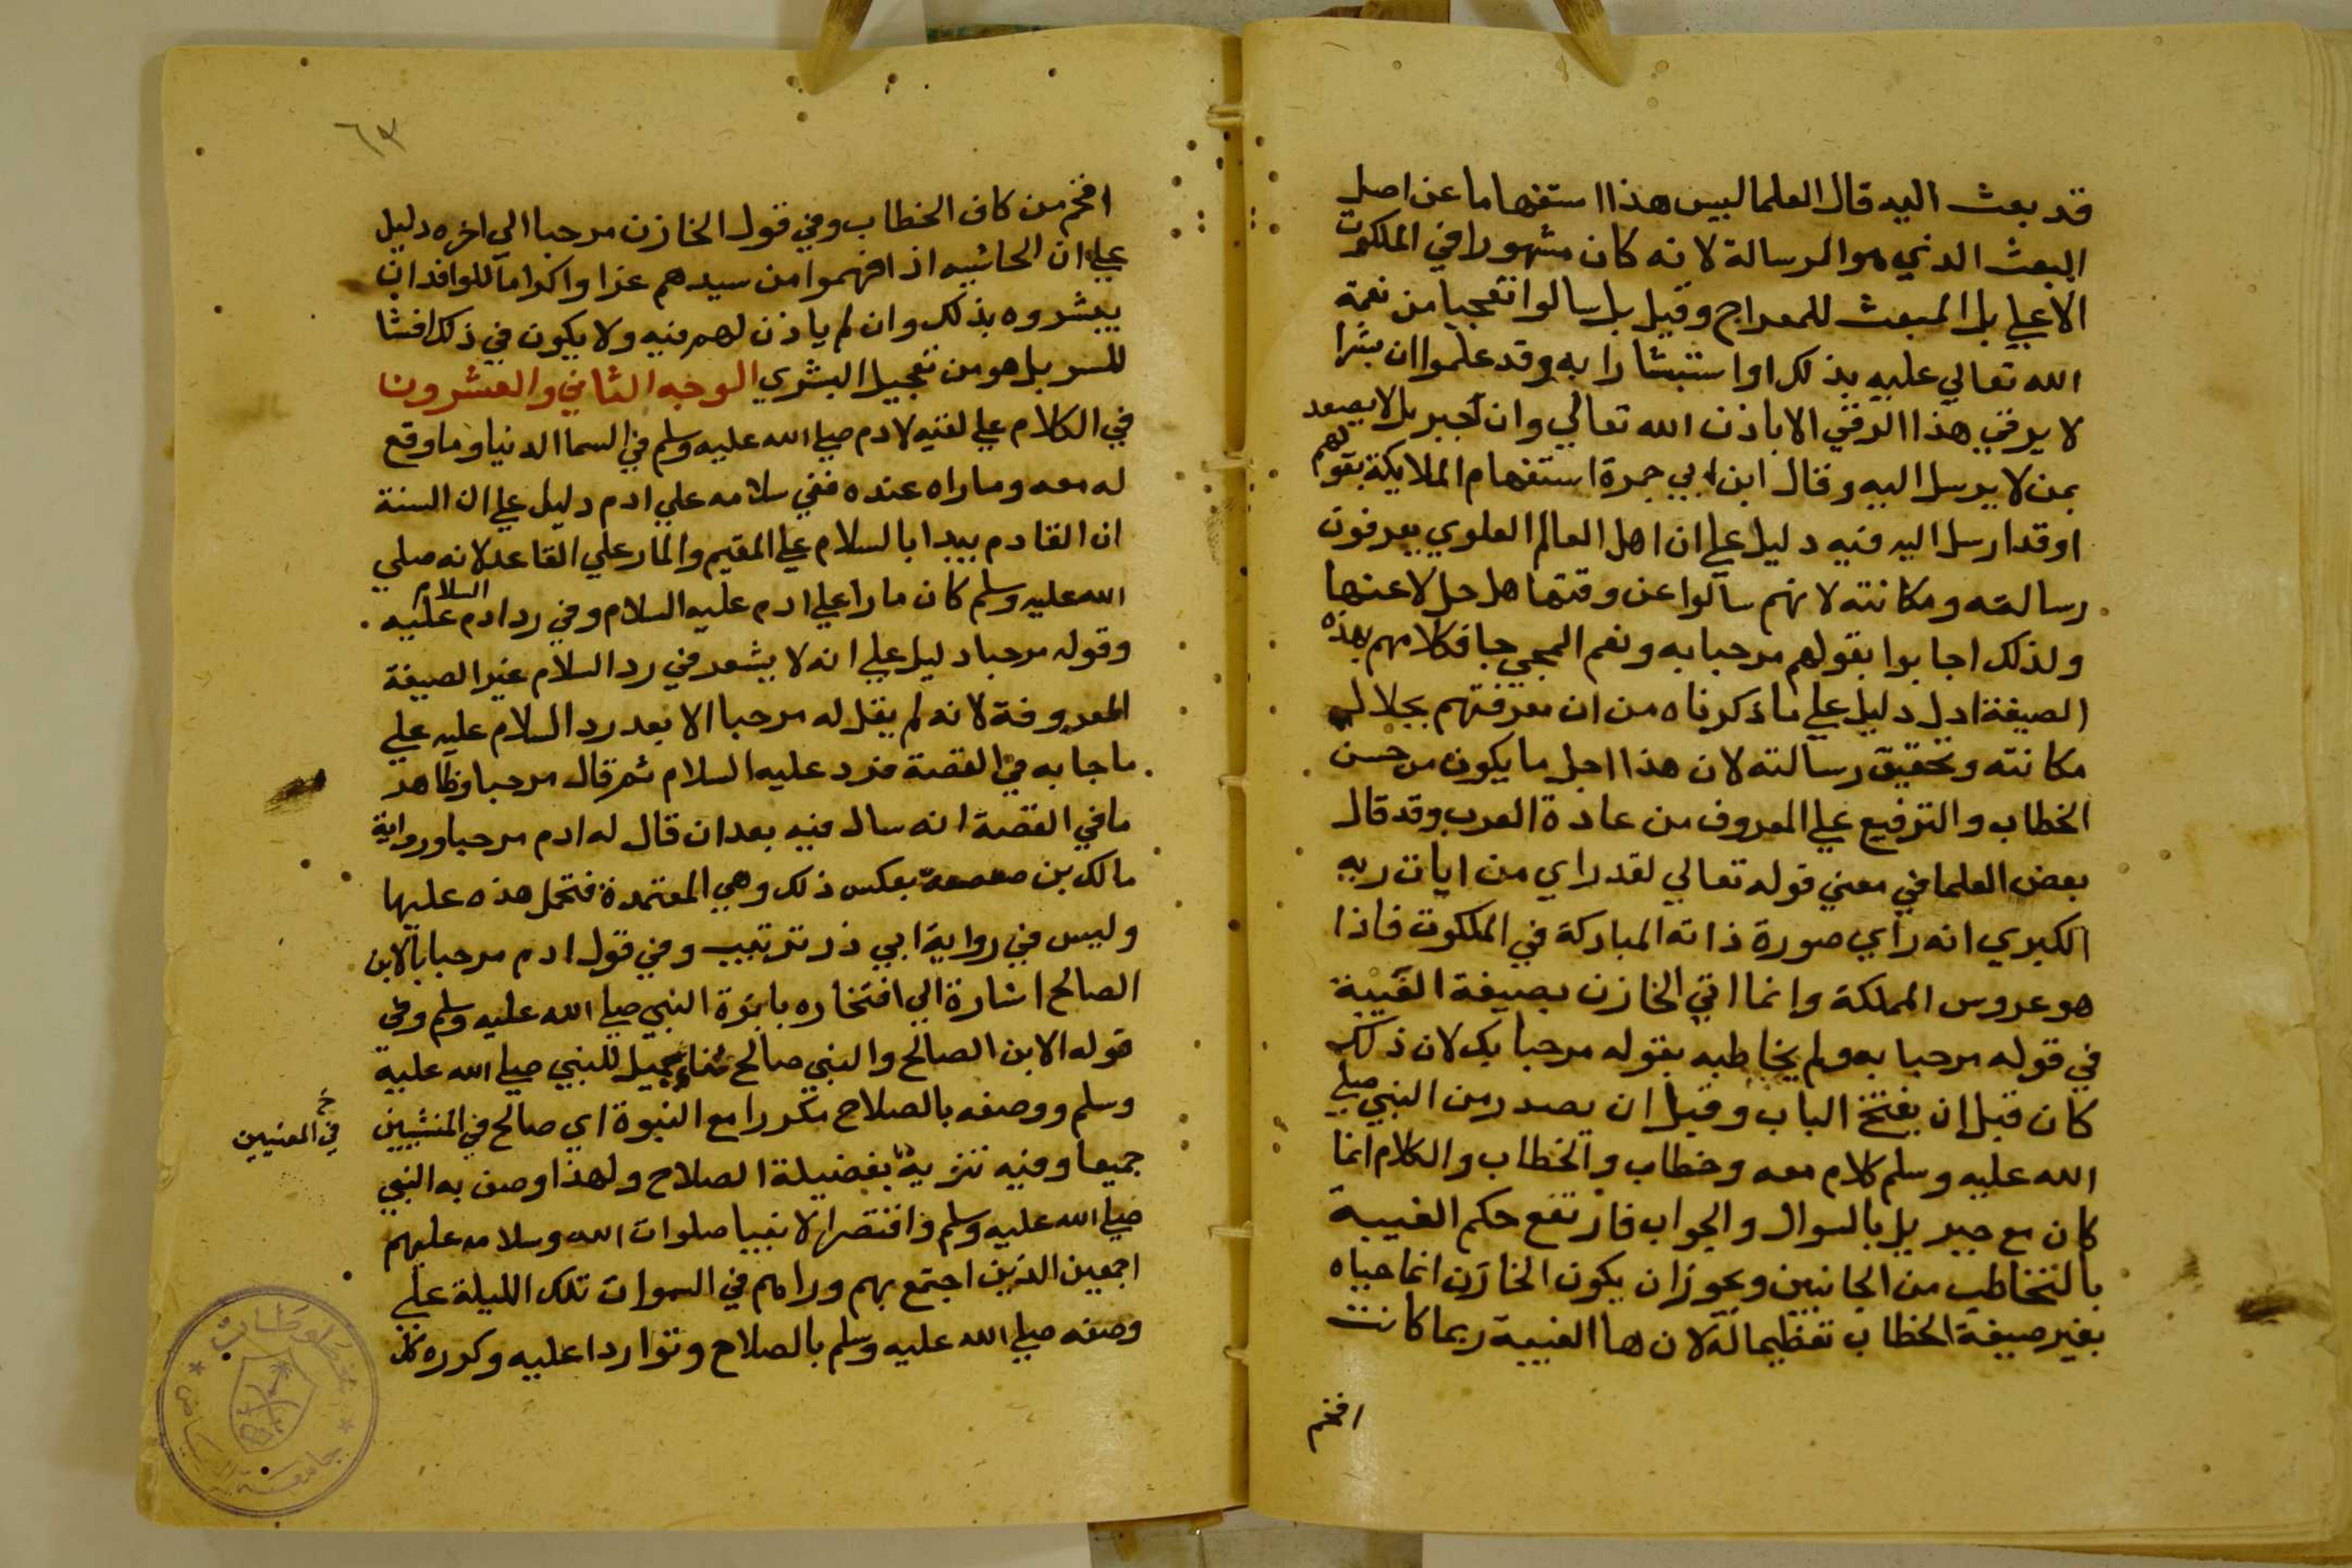 قد بعث اليه قال العلما ليس هذا استفهاما عن اصل
البعث الذي هو الرسالة لانه كان مشهورا في الملكوت
الاعلي بل المبعث للمعراج وقيل بل سالوا تعجبا من نعمة
الله تعالي عليه بذلك او استبشارا به وقد علموا ان بشرا
لا يرقي هذا الرقي الا باذن الله تعالي وان جبريل لا يصعد
بمن لا يرسل اليه وقال ابن ابي جمرة استفهام الملايكة بقولهم
اوقد ارسل اليه فيه دليل علي ان اهل العالم العلوي يعرفون
رسالته ومكانته لانهم سالوا عن وقتها هل حل لا عنها
ولذلك اجابوا بقولهم مرحبا به ونعم المجي جا فكلامهم بهذه
الصيغة ادل دليل علي ما ذكرناه من ان معرفتهم بجلال
مكانته وتحقيق رسالته لان هذا اجل ما يكون من حسن
الخطاب والترفيع علي المعروف من عادة العرب وقد قال
بعض العلما في معني قوله تعالي لقد راي من ايات ربه
الكبري انه راي صورة ذاته المباركة في الملكوت فاذا
هو عروس المملكة وانما اتي الخازن بصيغة الغيبة
في قوله مرحبا به ولم يخاطبه بقوله مرحبا بك لان ذلك
كان قبل ان يفتح الباب وقبل ان يصدر من النبي صلي
الله عليه وسلم كلام معه وخطاب والخطاب والكلام انما
كان مع جبريل بالسوال والجواب فارتفع حكم الغيبة
بالتخاطب من الجانبين ويجوز ان يكون الخازن انما حياه
بغير صيغة الخطاب تعظيما له لان ها الغيبة ربما كانت
افخم
٦٣
افخم من كاف الخطاب وفي قول الخازن مرحبا الي اخره دليل
علي ان الحاشيه اذا فهموا من سيدهم عزا واكراما للوافد ان
يبشروه بذلك وان لم ياذن لهم فيه ولا يكون في ذلك افشا
للسر بل هو من تعجيل البشري الوجه الثاني والعشرون
في الكلام علي لقيه لادم صلي الله عليه وسلم في السما الدنيا وما وقع
له معه وما راه عنده ففي سلامه علي ادم دليل علي ان السنة
ان القادم يبدا بالسلام علي المقيم والمار علي القاعد لانه صلي
الله عليه وسلم كان مارا علي ادم عليه السلام وفي رد ادم عليه السلام
وقوله مرحبا دليل علي انه لا يشعر في رد السلام غير الصيغة
المعروفة لانه لم يقل له مرحبا الا بعد رد السلام عليه علي
ما جا به في القصة فرد عليه السلام ثم قال مرحبا وظاهر
ما في القصة انه سال فيه بعد ان قال له ادم مرحبا ورواية
مالك بن صعصعة بعكس ذلك وهي المعتمدة فتحمل هذه عليها
وليس في رواية ابي ذر ترتيب وفي قول ادم مرحبا بالابن
الصالح اشارة الي افتخاره بابوة النبي صلي الله عليه وسلم وفي
قوله الابن الصالح والنبي صالح ثنا جميل للنبي صلي الله عليه
وسلم ووصفه بالصلاح مكررا مع النبوة اي صالح في المنشيين
في المعنيين
جميعا وفيه تنزيه بفضيلة الصلاح ولهذا وصف به النبي
صلي الله عليه وسلم واقتصر الانبيا صلوات الله وسلامه عليهم
اجمعين الذين اجتمع بهم وراهم في السموات تلك الليلة علي
وصفه صلي الله عليه وسلم بالصلاح وتواردا عليه وكرره كل
مخطوطات
جامعة الرياض